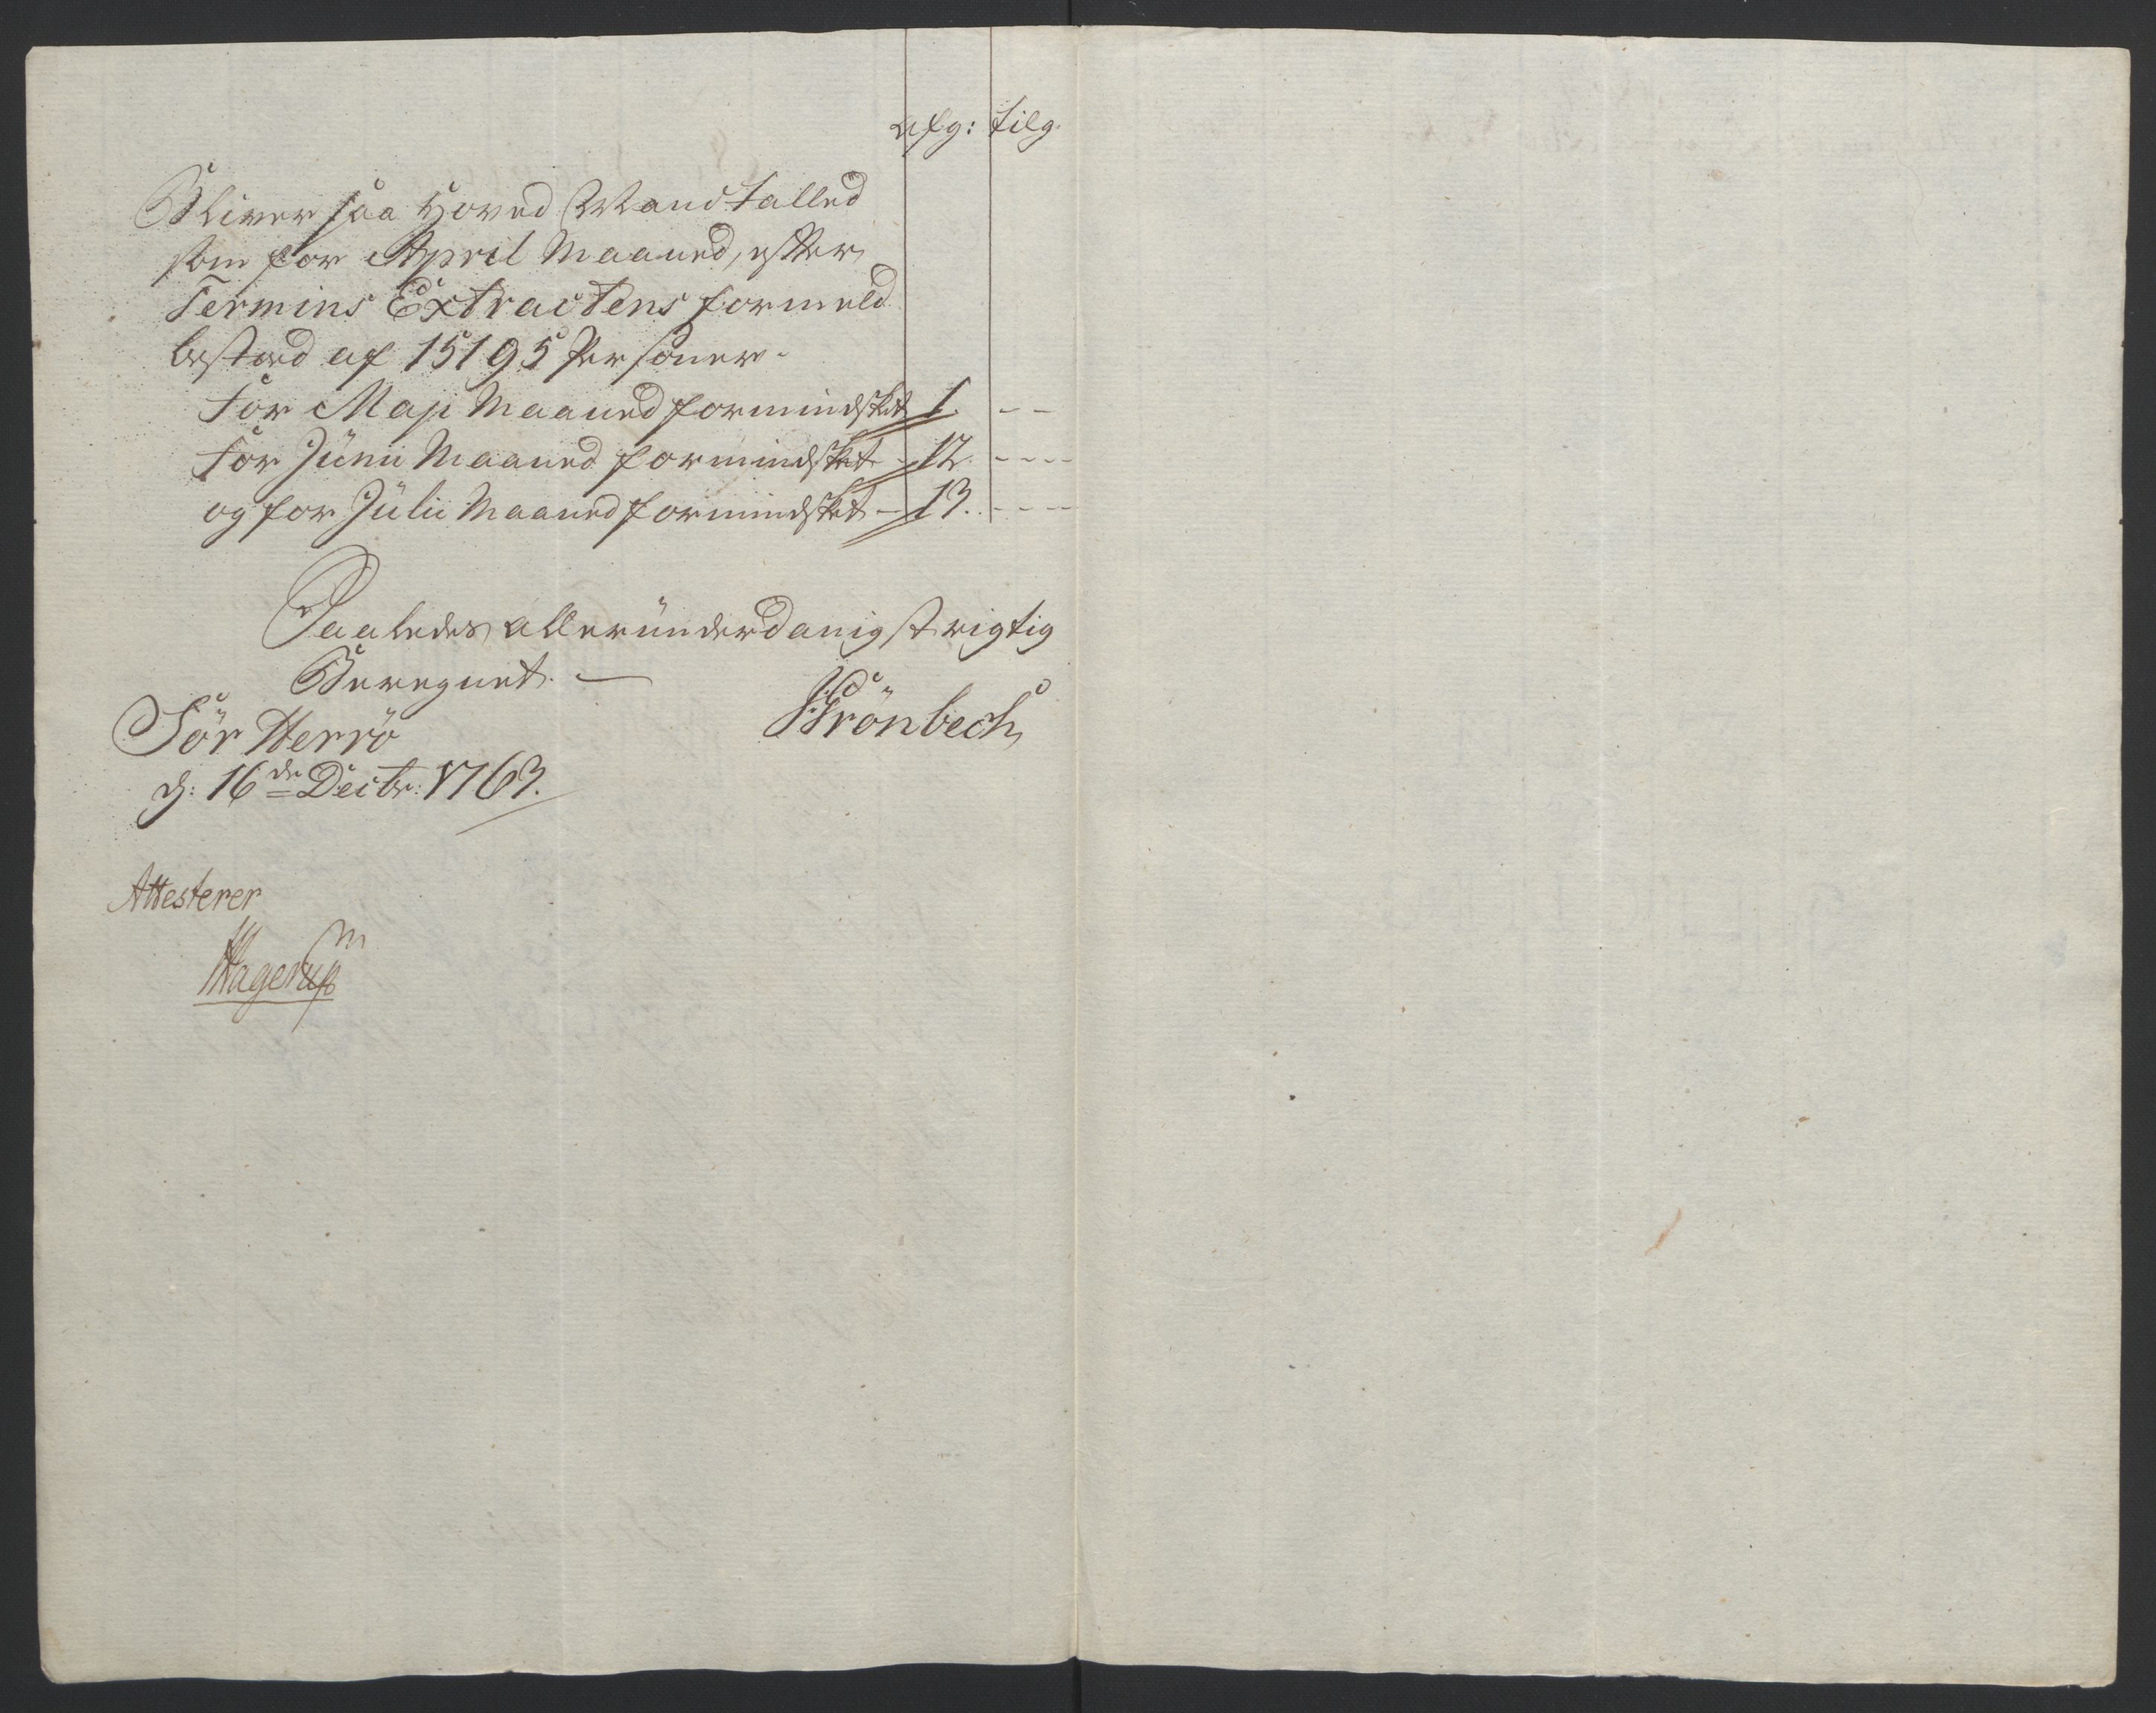 afg: tilg.
Bliver saa Hoved Mandtalled
som for April Maaned, efter
Termins Extractens formeld
bestoed af 15195 Personer.
For Maji Maaned formindsket 1. - -
for Junii Maaned formindsket - 12. - - - -
og for Julii Maaned formindsket - 13. - - - -
Saaledes alleründerdanigst rigtig
Beregnet. —
Grönbech
Sör Herrö
d: 16de Decbr: 1763.
Attesterer
Hagerup